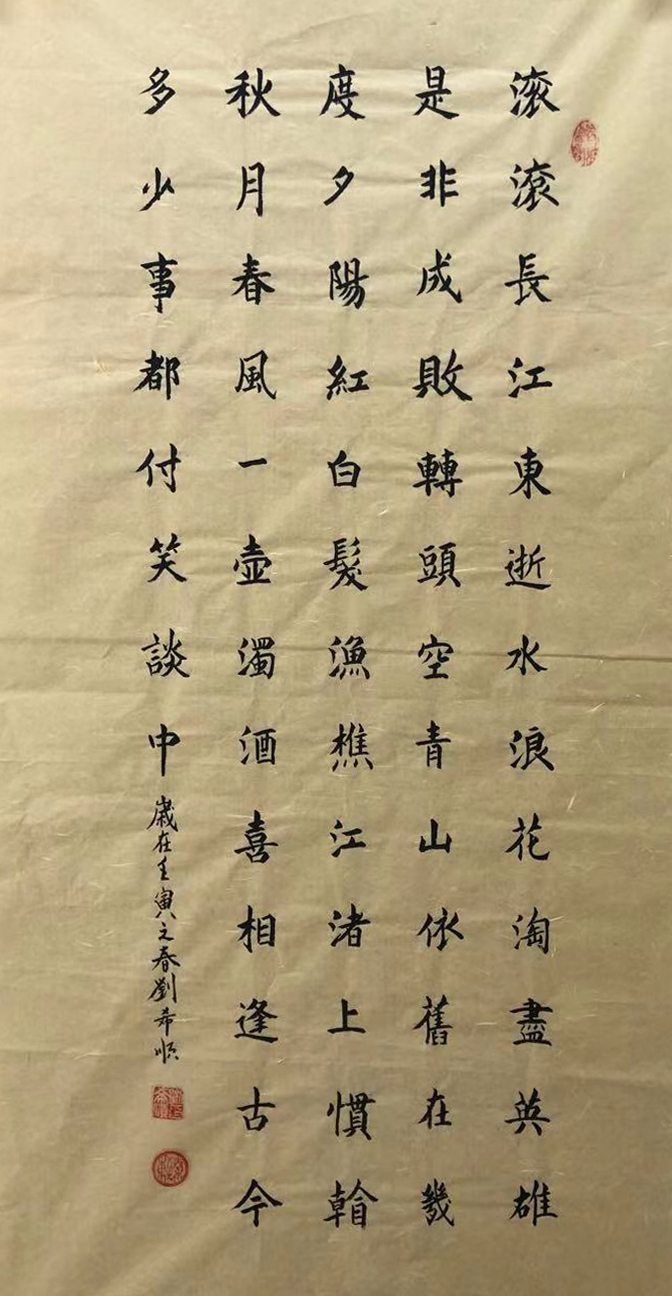 滚滚長江東逝水浪花淘盡英雄
是非成敗轉頭空青山依舊在幾
度夕陽紅白髮漁樵江渚上慣
秋月春風一壷濁酒喜相逢古今
多少事都付笑談中
歲在壬寅之春劉希順